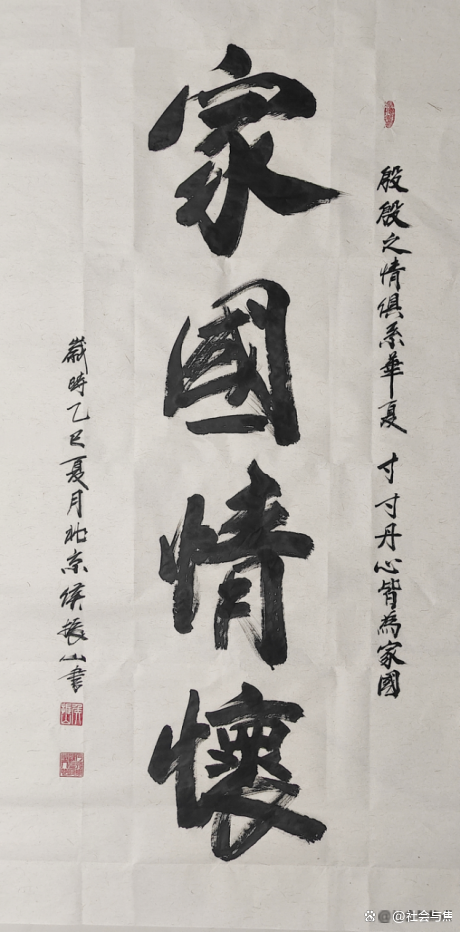 殷殷之情俱系華夏 寸寸丹心皆為家國
家國情懷
歲時乙巳夏月北京侯振山書
@社会与焦